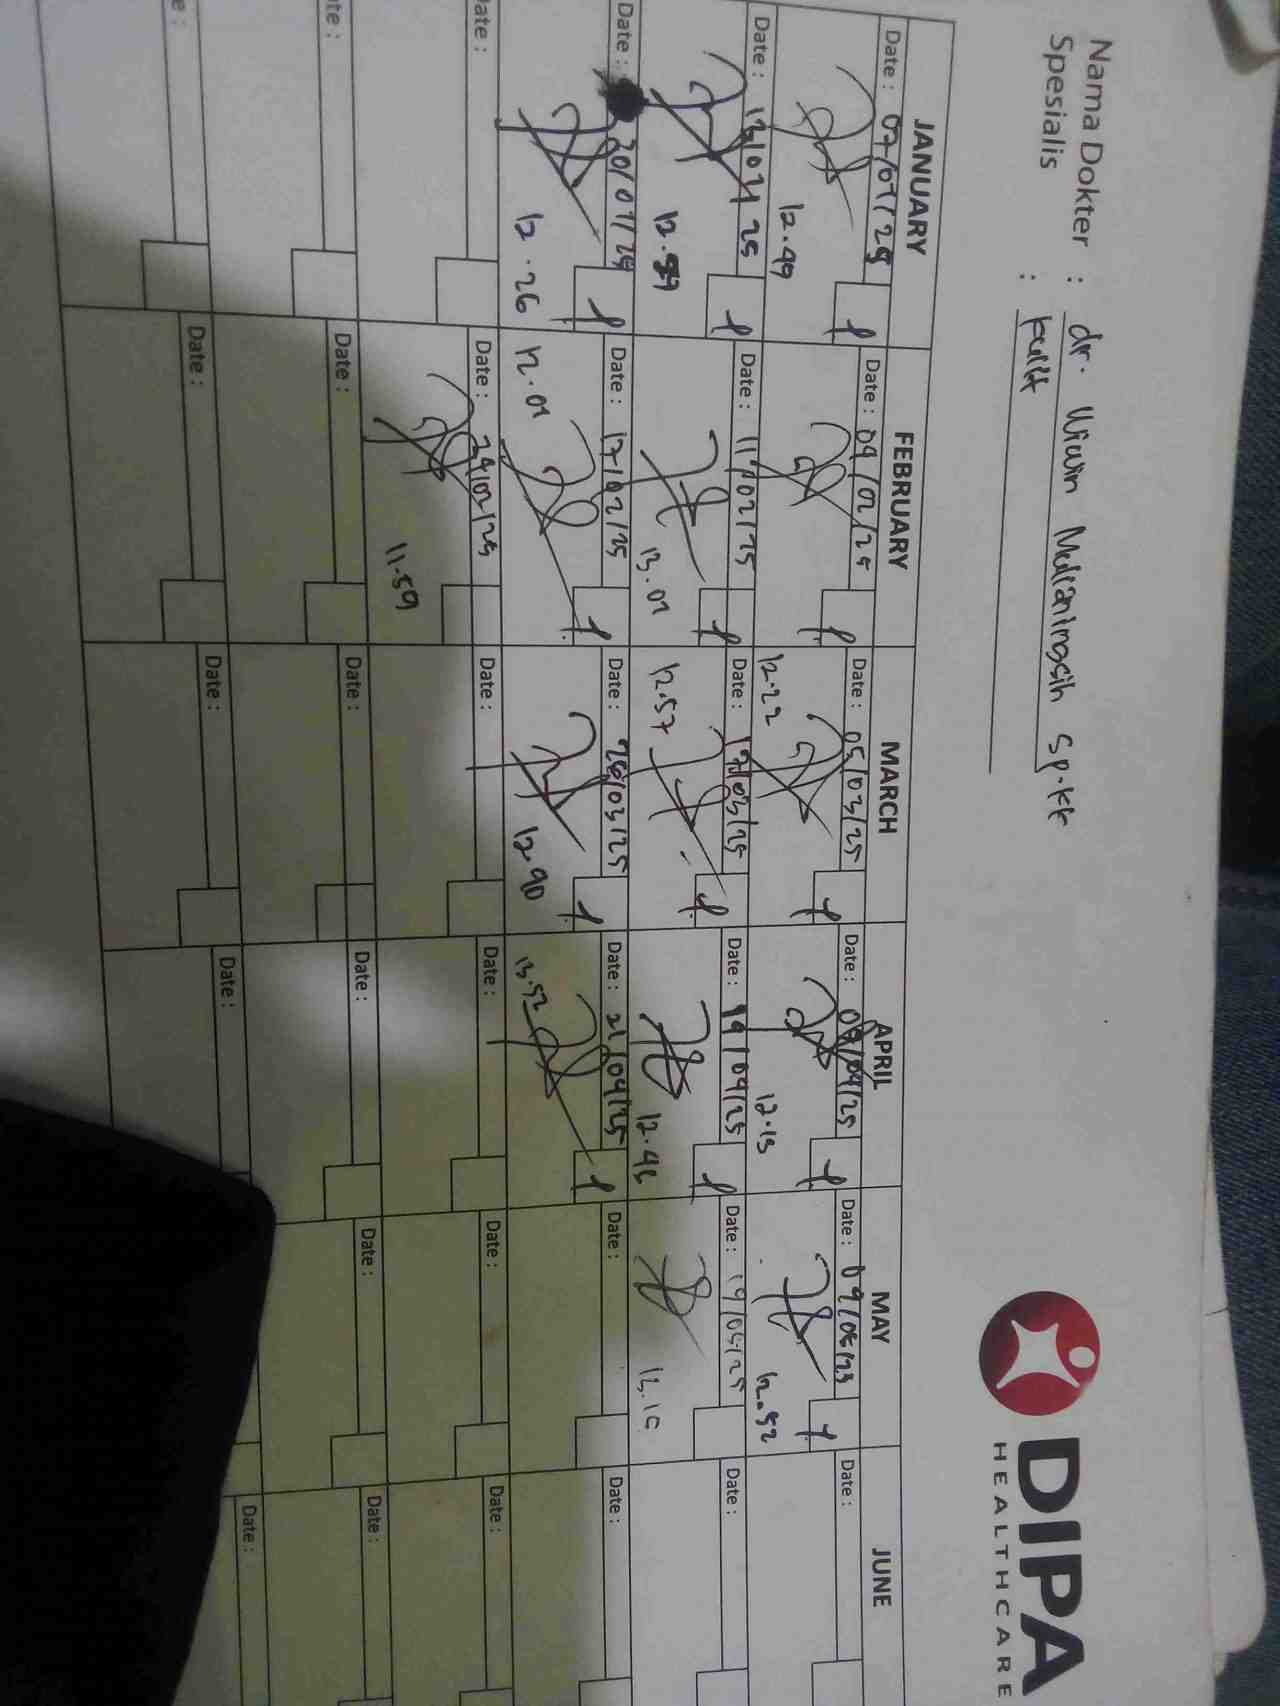 Nama Dokter : dr. Wiwin Mulianingsih Sp.KK
Spesialis : kulit
DIPA
HEALTHCARE
JANUARY FEBRUARY MARCH APRIL MAY JUNE
Date : 07/01/25 Date : 04/02/25 Date : 05/03/25 Date : Date : Date :
12.49 12.22 12.13 12.52
Date : 13/01/25 Date : 11/02/25 Date : 17/03/25 Date : 14/04/25 Date : 19/05/25 Date :
13.01 12.57 12.43
Date : 20/01/25 Date : 17/02/25 Date : 26/03/25 Date : 21/04/25 Date : Date :
12.26 12.01 12.40 13.52
Date : Date : 24/02/25 Date : Date : Date : Date :
11.59
Date : Date : Date : Date : Date :
Date : Date : Date : Date :